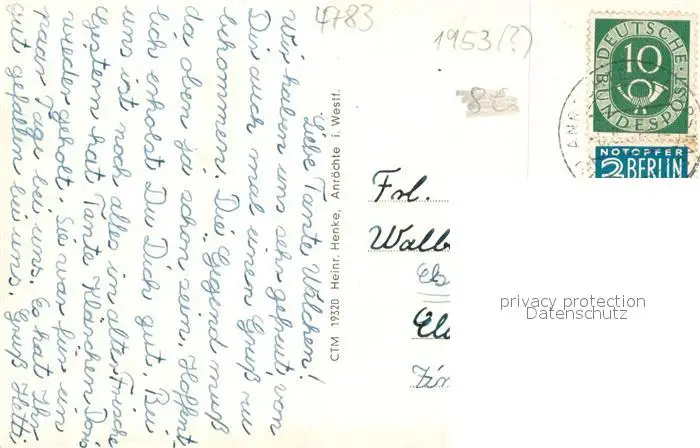 4783
1953(?)
8€
DEUTSCHE
10
BUNDESPOST
NOTOPFER
2 BERLIN
ANR
Liebe Tante Wälchen!
Wir haben uns sehr gefreut, von
Dir auch mal einen Gruß zu
bekommen. Die Gegend muß
da oben ja schön sein. Hoffent
lich erholst Du Dich gut. Bei
uns ist noch alles in alter Frische
Gestern hat Tante Klärchen Doris
wieder geholt. Sie war für ein
paar Tage bei uns. Es hat Ihr
gut gefallen bei uns. Gruß Hetti
CTM 19320 Heinr. Henke, Anröchte i. Westf.
Frl.
Walb
Els
privacy protection
Datenschutz